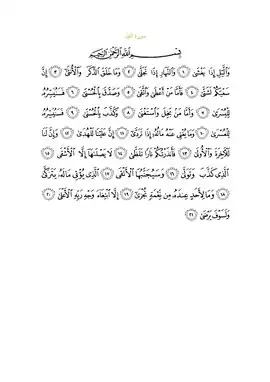 سورة الليل
بِسْمِ اللَّهِ الرَّحْمَٰنِ الرَّحِيمِ
وَاللَّيْلِ إِذَا يَغْشَىٰ ١ وَالنَّهَارِ إِذَا تَجَلَّىٰ ٢ وَمَا خَلَقَ الذَّكَرَ وَالْأُنثَىٰ ٣ إِنَّ
سَعْيَكُمْ لَشَتَّىٰ ٤ فَأَمَّا مَنْ أَعْطَىٰ وَاتَّقَىٰ ٥ وَصَدَّقَ بِالْحُسْنَىٰ ٦ فَسَنُيَسِّرُهُ
لِلْيُسْرَىٰ ٧ وَأَمَّا مَن بَخِلَ وَاسْتَغْنَىٰ ٨ وَكَذَّبَ بِالْحُسْنَىٰ ٩ فَسَنُيَسِّرُهُ
لِلْعُسْرَىٰ ١٠ وَمَا يُغْنِي عَنْهُ مَالُهُ إِذَا تَرَدَّىٰ ١١ إِنَّ عَلَيْنَا لَلْهُدَىٰ ١٢ وَإِنَّ لَنَا
لَلْآخِرَةَ وَالْأُولَىٰ ١٣ فَأَنذَرْتُكُمْ نَارًا تَلَظَّىٰ ١٤ لَا يَصْلَاهَا إِلَّا الْأَشْقَى ١٥
الَّذِي كَذَّبَ وَتَوَلَّىٰ ١٦ وَسَيُجَنَّبُهَا الْأَتْقَى ١٧ الَّذِي يُؤْتِي مَالَهُ يَتَزَكَّىٰ
١٨ وَمَا لِأَحَدٍ عِندَهُ مِن نِّعْمَةٍ تُجْزَىٰ ١٩ إِلَّا ابْتِغَاءَ وَجْهِ رَبِّهِ الْأَعْلَىٰ ٢٠
وَلَسَوْفَ يَرْضَىٰ ٢١